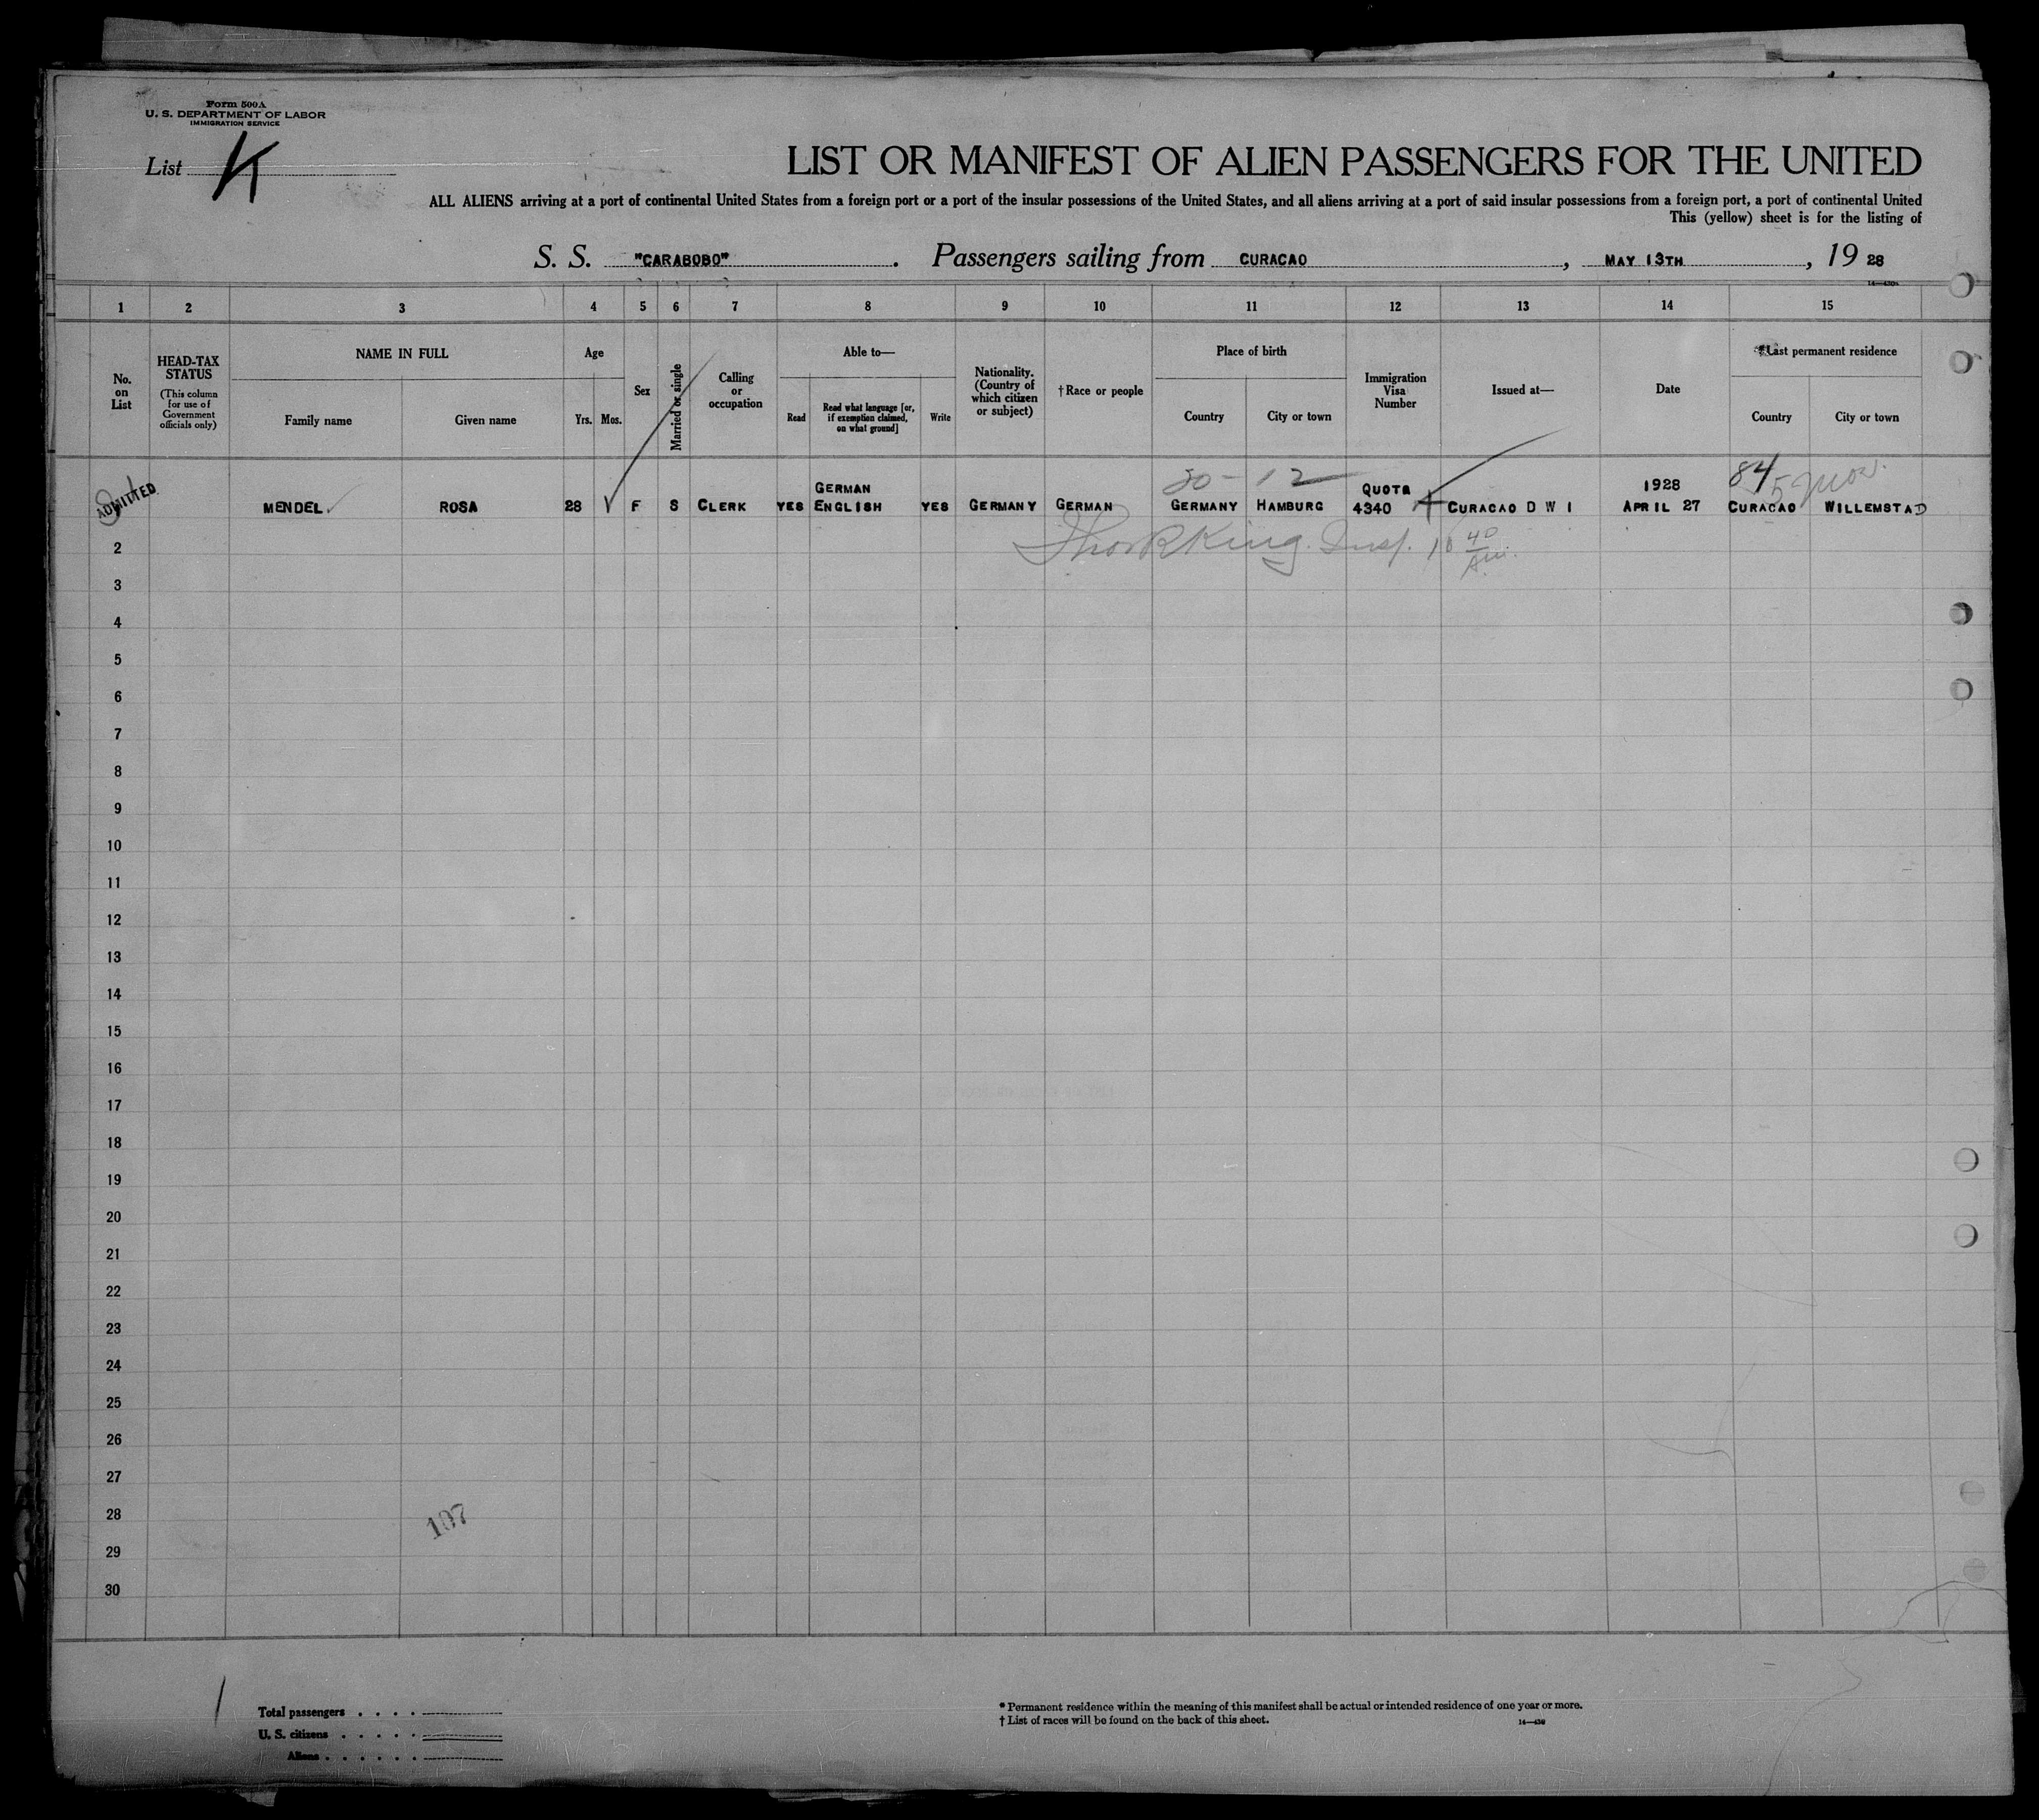 Form 500A
U. S. DEPARTMENT OF LABOR
IMMIGRATION SERVICE
List K
LIST OR MANIFEST OF ALIEN PASSENGERS FOR THE UNITED
ALL ALIENS arriving at a port of continental United States from a foreign port or a port of the insular possessions of the United States, and all aliens arriving at a port of said insular possessions from a foreign port, a port of continental United
This (yellow) sheet is for the listing of
S. S. "CARABOBO". Passengers sailing from CURACAO, MAY 13TH, 19 28
1 2 3 4 5 6 7 8 9 10 11 12 13 14 15
No. on List
HEAD-TAX STATUS (This column for use of Government officials only)
NAME IN FULL
Family name Given name
Age
Yrs. Mos.
Sex
Married or single
Calling or occupation
Able to—
Read
Read what language [or, if exemption claimed, on what ground]
Write
Nationality. (Country of which citizen or subject)
† Race or people
Place of birth
Country City or town
Immigration Visa Number
Issued at—
Date
*Last permanent residence
Country City or town
20-12 84 5 mos.
ADMITTED MENDEL ROSA 28 F S CLERK YES GERMAN ENGLISH YES GERMANY GERMAN GERMANY HAMBURG QUOTA 4340 CURACAO D W I 1928 APRIL 27 CURACAO WILLEMSTAD
King. Insp. 10 40 Am.
2
3
4
5
6
7
8
9
10
11
12
13
14
15
16
17
18
19
20
21
22
23
24
25
26
27
28
107
29
30
Total passengers . . . .
U. S. citizens . . . . .
Aliens . . . . . .
* Permanent residence within the meaning of this manifest shall be actual or intended residence of one year or more.
† List of races will be found on the back of this sheet.
14—430